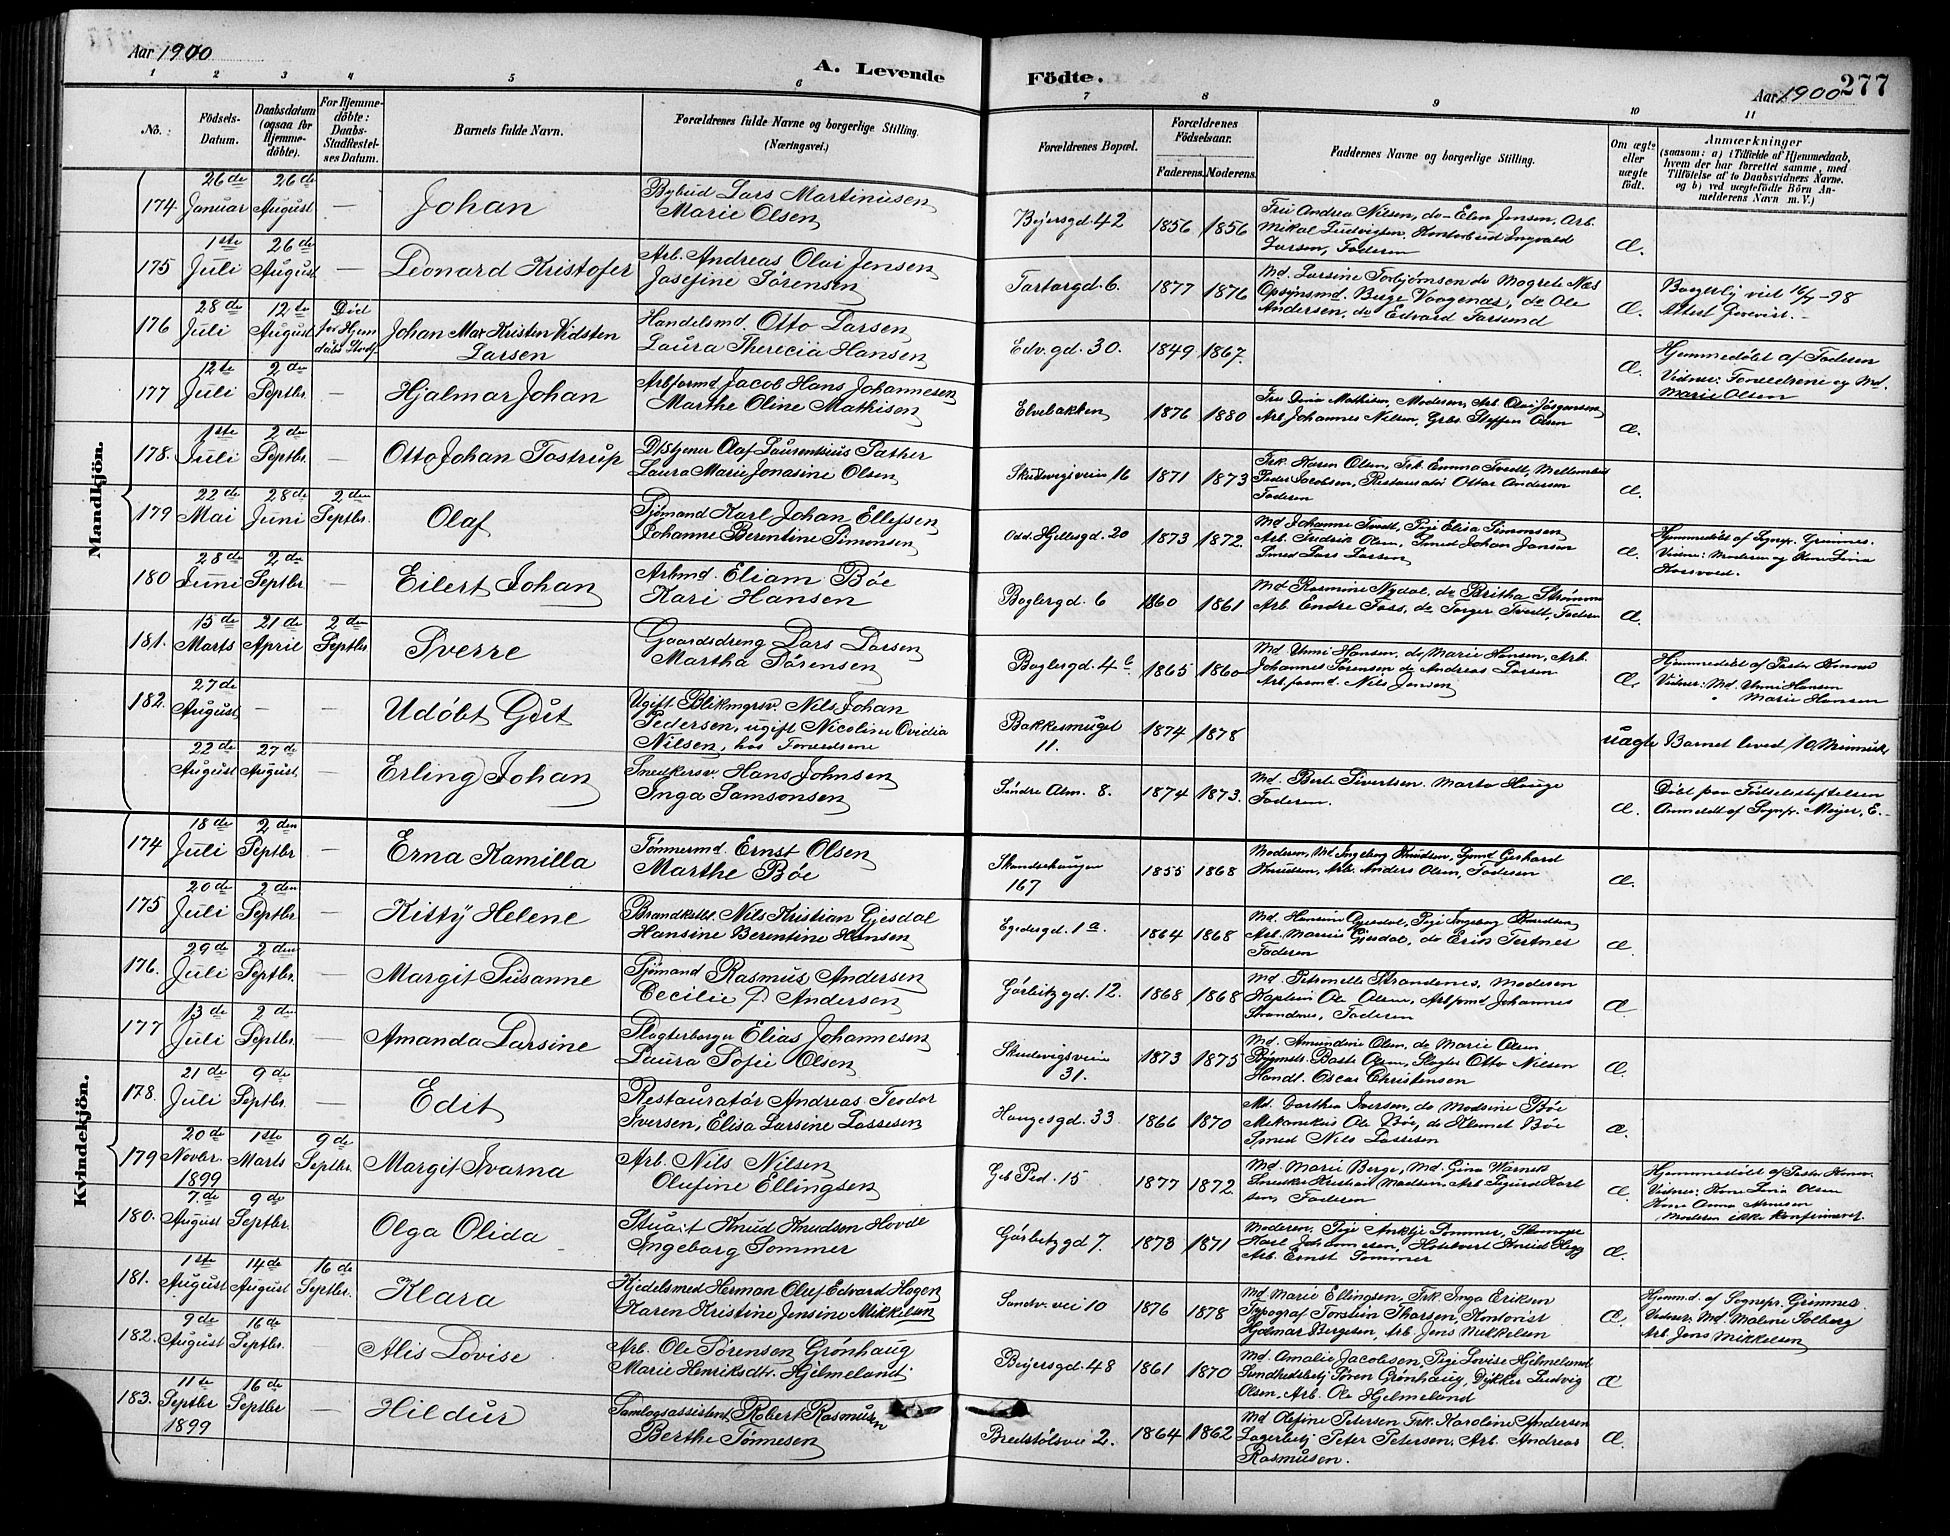 Aar 1900
A. Levende
Födte.
277
Aar 1900
1 2 3 4 5 6 7 8 9 10 11
No.:
Födsels-Datum.
Daabsdatum (ogsaa for Hjemme-döbte).
For Hjemme-döbte: Daabs-Stadfæstel-ses Datum.
Barnets fulde Navn.
Forældrenes fulde Navne og borgerlige Stilling. (Næringsvei.)
Forældrenes Bopæl.
Forældrenes Födselsaar.
Faderens. Moderens.
Faddernes Navne og borgerlige Stilling.
Om ægte eller uægte födt.
Anmærkninger
(saasom: a) i Tilfælde af Hjemmedaab, hvem der har forrettet samme, med Tilföielse af to Daabsvidners Navne. og b) ved uægtefödte Börn An-melderens Navn m. V.)
Mandkjön.
174 26de Januar 26de August — Johan
Bybud Lars Martinusen
Marie Olsen
Beyersgd 42 1856 1856
Fru Andrea Nilsen, do Elen Jensen, Arb.
Mikal Ludvigsen, Kontorbud Ingvald
Larsen, Faderen
Æ.
175 1ste Juli 26de August — Leonard Kristofer
Arb. Andreas Olai Jensen
Josefine Sørensen
Tartargd. 6. 1877 1876
Md. Larsine Torbjørnsen do Magrete Næs
Opsynsmd. Berge Vaagenæs, do Ole
Andersen, do Edvard Farsund
Æ.
Borgerlig viet 16/7-98
Attest forevist.
176 28de Juli 12te August Død for Hjemdåbs Stadf.
Johan Max Kristen Vidsten
Larsen
Handelsmd. Otto Larsen
Laura Therecia Hansen
Edv. gd. 30. 1849 1867.
Æ.
Hjemmedøbt af Faderen
Vidner: Forældrene og Md.
Marie Olsen
177 12te Juli 2de Septbr. — Hjalmar Johan
Arbformd Jacob Hans Johannesen
Marthe Oline Mathisen
Elvebakken 1876 1880
Fru Lina Mathisen, Moderen, Arb. Olai Jörgensen
Arb Johannes Nilsen, Grbr. Steffen Olsen
Æ.
178. 1ste Juli 2de Septbr. — Otto Johan Tostrup
Olaf Laurentsius Sather
Laura Marie Jonasine Olsen
Skudevigsveien 16 1871 1873
Frk. Karen Olsen, Frk. Emma Tvedt,
Peder Jacobsen, Restauratør Ottar Andersen
Faderen
Æ.
179 22de Mai 28de Juni 2den Septbr. Olaf
Sjömand Karl Johan Ellefsen
Johanne Berentine Simonsen
Odd. Hjeltesgd. 20 1873 1872.
Md Johanne Tvedt, Pige Elisa Simonsen
Arb. Fredrik Olsen, Smed Johan Jansen
Smed Lars Larsen
Æ.
Hjemmedöbt af Sognepr. Grimnes.
Vidner: Moderen og Kone Lina
180 28de Juni 2de Septbr. — Eilert Johan
Arbmd. Eliam Böe
Kari Hansen
Baglergd. 6 1860 1861
Md Rasmine Nydal, do Britha Strömme
Arb. Endre Foss, do Torger Tvedt, Faderen
Æ.
181. 15de Marts 21de April 2den Septbr Sverre
Gaardsdreng Lars Larsen
Martha Sørensen
Baglergd. 4c 1865 1860
Md Unni Hansen, do Marie Hansen, Arb.
Johannes Sørensen do Andreas Larsen
Arb. formd. Nils Jensen
Æ.
Hjemmedøbt af Pastor
Vidner: Md. Unni Hansen
" Marie Hansen
182. 27de August — — Udöbt Gut
Ugift Blikmgrsv. Nils Johan
Pedersen, ugift Nicoline Ovidia
Nilsen, hos Forældrene
Bakkesmuget 11. 1874 1878
uægte
Barnet leved 10 Minutt
22de August 27de August — Erling Johan
Snedkersv. Hans Johnsen
Inga Samsonsen
Söndre Alm. 8. 1874 1873.
Md. Berte Sivertsen. Marta Hauge
Faderen.
Æ.
Döbt paa Födselsstiftelsen
Anmeldt af Sognpr. Meyer, E.
Kvindekjön.
174 18de Juli 2den Septbr — Erna Kamilla
Tömmermd. Ernst Olsen
Marthe Böe
167 1855 1868
Moderen, Md Ingeborg Knudsen, Sjmd Gerhard
Knudsen, Arb. Anders Olsen, Faderen
Æ.
175 20de Juli 2den Septbr. — Kitty Helene
Nils Kristian Gjesdal
Hansine Berentine Hansen
Egedesgd. 1a 1864 1868
Md. Hansine Gjesdal, Pige Ingeborg Knudsen
Arb. Marius Gjesdal, do Erik Tertnes
Faderen
Æ
176. 29de Juli 2den Septbr. — Margit Susanne
Sjömand Rasmus Andersen
Cecilie P. Andersen
Görbitzgd. 12. 1868 1868
Md. Petronelle Strandenes, Moderen
Kaptein Ole Olsen, Arbformd Johannes
Strandnes, Faderen
Æ
177 13de Juli 2den Septbr. — Amanda Larsine
Slagterborger Elias Johannesen
Laura Sofie Olsen
Skudevigsveien 31. 1873 1875
Md. Amundine Olsen, do Marie Olsen
Baste Olsen, Slagter Otto Nilsen
Handl. Oscar Christensen
Æ.
178. 21de Juli 9de Septbr. — Edit
Restauratør Andreas Teodor
Iversen, Elisa Larsine Lassesen
Haugesgd. 33 1866 1870
Md. Dorthea Iversen, do Madsine Böe
Mekanikus Ole Böe, do Klemet Böe
Smed Nils Lassesen
Æ.
179 20de Novbr. 1899 1ste Marts 9de Septbr. Margit Ivarna
Arb. Nils Nilsen
Olufine Ellingsen
Geb Ped. 15 1877 1872.
Md. Marie Berge, Md. Gina Warnek
Snedker Kristian Madsen, Arb Sigurd Karl
sen, Faderen
Æ.
Hjemmedöbt af Pastor
Vidner: Kone Lina Olsen
Kone Anna Arnesen
Moderen ikke konfirmeret.
180. 7.de August 9de Septbr. Olga Olida
Stuart Knud Knudsen Hovde
Ingeborg Sommer
Görbitzgd 7. 1873 1871
Moderen, Pige Ankije Sommer,
Karl Johannesen, Knud
Arb. Ernst Sommer
Æ.
181. 1ste August 14de August 16de Septbr. Klara
Kjedelsmed Herman Oluf Edvard Hagen
Karen Kristine Jensine Mikkelsen
Sandv. vei 10 1876 1878
Md. Marie Ellingsen, Frk. Inga Eriksen
Typograf Torstein Tharsen, Kontorist
Hjalmar Bergesen, Arb. Jens Mikkelsen
Æ.
Hjemmd. af Sognepr. Grimnes.
Vidner: Md. Malene Solberg
Arb. Jens Mikkelsen
182. 9de August 16de Septbr. Alis Lovise
Arb. Ole Sørensen Grönhaug
Marie Henriksdtr. Hjelmeland
Beyersgd. 48 1861 1870
Md. Amalie Jacobsen, Pige Lovise Hjelmeland
Sundhedsbetj. Sören Grönhaug, Dykker Ludvig
Olsen, Arb. Ole Hjelmeland
Æ
183. 11te Septbr 1899 16de Septbr — Hildur
Samlagsassistent Robert Rasmusen
Berthe Tönnesen
Bredstölsvei 2. 1864 1862
Md Olefine Petersen Frk. Karoline Andersen
Lagerbetj. Peter Petersen. Arb. Andreas
Rasmusen.
Æ.